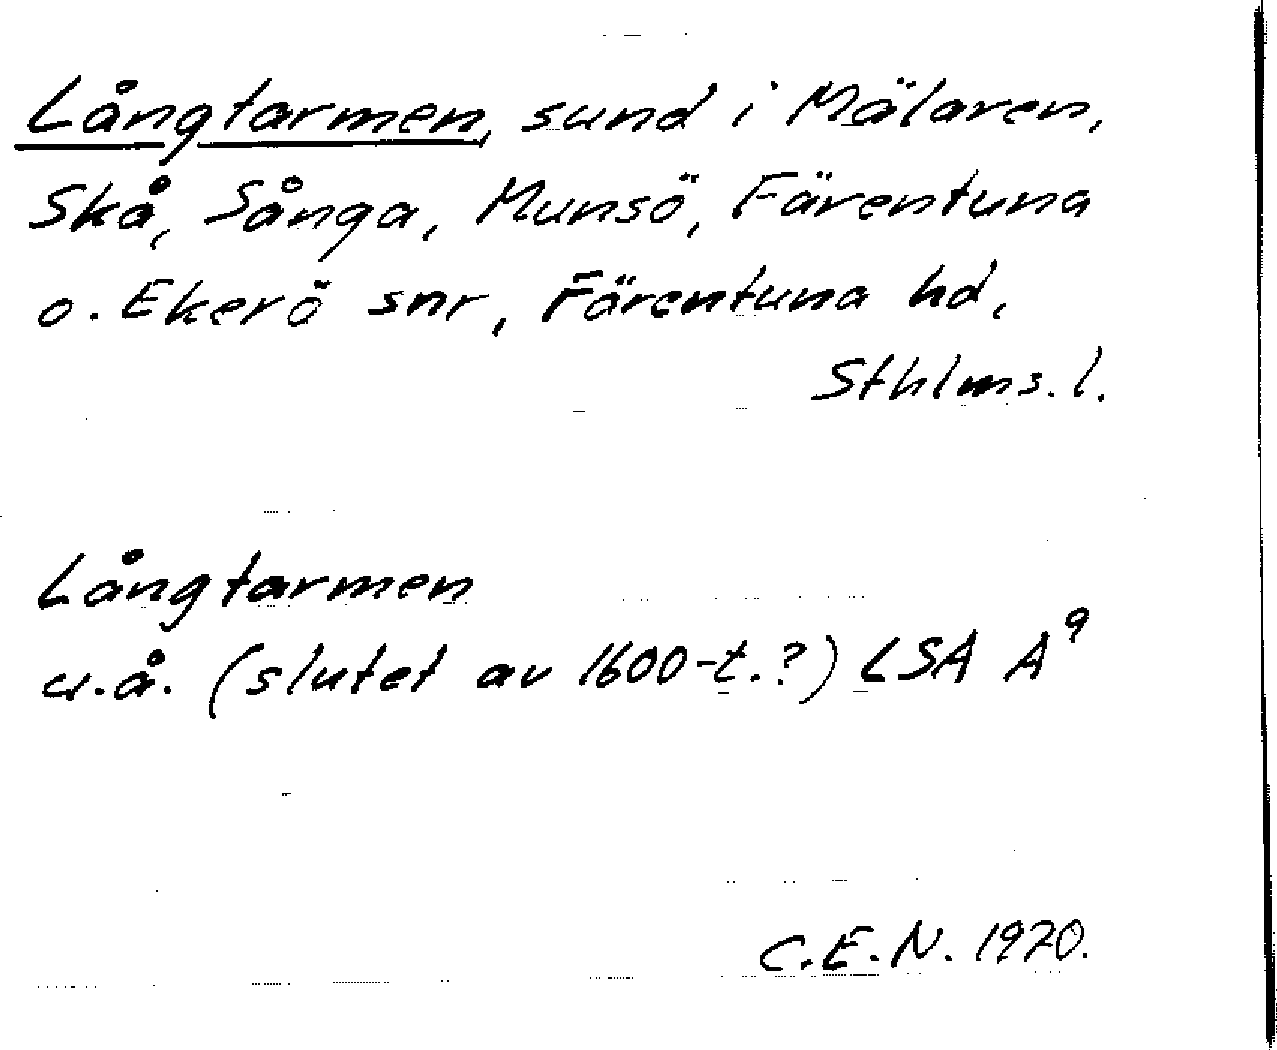 Långtarmen, sund i Mälaren,
Skå, Sånga, Munsö, Färentuna
o. Ekerö snr, Färentuna hd,
Sthlms. l.
Långtarmen
u.å. (slutet av 1600-t.?) LSA A⁹
C.E.N. 1970.